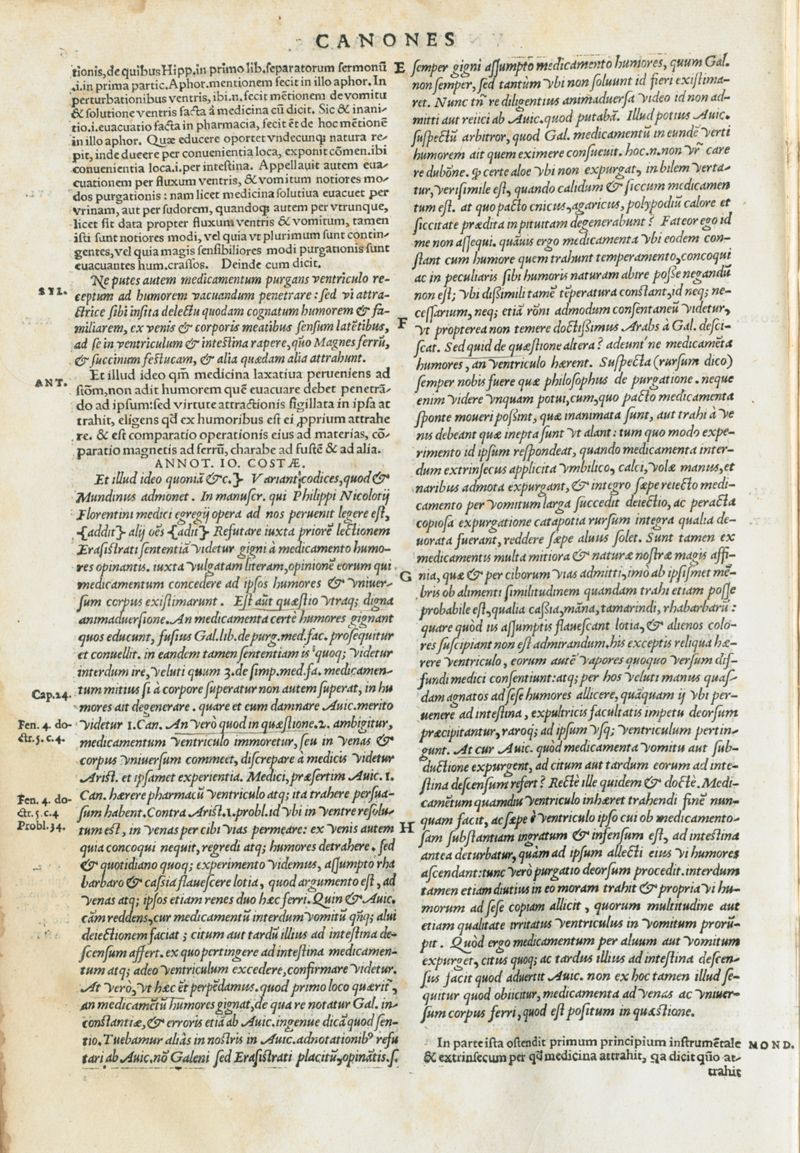 CANONES
tionis, de quibus Hipp. in primo lib. separatorum sermonū
.i. in prima partic. Aphor. mentionem fecit in illo aphor. In
perturbationibus ventris, ibi. n. fecit mētionem de vomitu
& solutione ventris facta à medicina cū dicit. Sic & inani-
tio. i. euacuatio facta in pharmacia, fecit ēt de hoc mētionē
in illo aphor. Quæ educere oportet vndecunq; natura re-
pit, inde ducere per conuenientia loca, exponit cōmen. ibi
conuenientia loca. i. per intestina. Appellauit autem eua-
cuationem per fluxum ventris, & vomitum notiores mo-
dos purgationis: nam licet medicina solutiua euacuet per
vrinam, aut per sudorem, quandoq; autem per vtrunque,
licet sit data propter fluxum ventris & vomitum, tamen
isti sunt notiores modi, vel quia vt plurimum sunt contin-
gentes, vel quia magis sensibiliores modi purgationis sunt
euacuantes hum. crassos. Deinde cum dicit.
SYL.
Ne putes autem medicamentum purgans ventriculo re-
ceptum ad humorem vacuandum penetrare: sed vi attra-
ctrice sibi insita delectu quodam cognatum humorem & fa-
miliarem, ex venis & corporis meatibus sensum latētibus,
ad se in ventriculum & intestina rapere, quo Magnes ferrū,
& succinum festucam, & alia quædam alia attrahunt.
ANT.
Et illud ideo qm̄ medicina laxatiua perueniens ad
stōm, non adit humorem quē euacuare debet penetrā-
do ad ipsum: sed virtute attractionis sigillata in ipsa at
trahit, eligens qd̄ ex humoribus est ei ꝓprium attrahe
re. & est comparatio operationis eius ad materias, cō-
paratio magnetis ad ferrū, charabe ad fustē & ad alia.
ANNOT. IO. COSTÆ.
Et illud ideo quoniā &c.} Variant codices, quod &
Mundinus admonet. In manuscr. qui Philippi Nicolotij
Florentini medici egregij opera ad nos peruenit legere est,
{addit} alij oēs {adit} Refutare iuxta priorē lectionem
Erasistrati sententiā videtur gigni à medicamento humo-
res opinantis. iuxta vulgatam literam, opinionē eorum qui
medicamentum concedere ad ipsos humores & vniuer-
sum corpus existimarunt. Est aūt quæstio vtraq; digna
animaduersione. An medicamenta certè humores gignant
quos educunt, fusius Gal. lib. de purg. med. fac. prosequitur
et conuellit. in eandem tamen sententiam is quoq; videtur
interdum ire, veluti quum 3. de simp. med. fa. medicamen-
Cap. 24.
tum mitius si à corpore superatur non autem superat, in hu
mores ait degenerare. quare et cum damnare Auic. merito
Fen. 4. do-
ctr. 5. c. 4.
videtur 1. Can. An verò quod in quæstione. 2. ambigitur,
medicamentum ventriculo immoretur, seu in venas &
corpus vniuersum commeet, discrepare à medicis videtur
Arist. et ipsamet experientia. Medici, præsertim Auic. 1.
Fen. 4. do-
ctr. 5. c. 4
Can. hærere pharmacū ventriculo atq; ita trahere persua-
sum habent. Contra Arist. 1. probl. id vbi in ventre resolu-
Probl. 34.
tum est, in venas per cibi vias permeare: ex venis autem
quia concoqui nequit, regredi atq; humores detrahere. sed
& quotidiano quoq; experimento videmus, assumpto rha
barbaro & cassia flauescere lotia, quod argumento est, ad
venas atq; ipsos etiam renes duo hæc ferri. Quin & Auic.
cām reddens, cur medicamentū interdum vomitū qn̄q; alui
deiectionem faciat; citum aut tardū illius ad intestina de-
scensum affert. ex quo pertingere ad intestina medicamen-
tum atq; adeo ventriculum excedere, confirmare videtur.
At verò, vt hæc ēt perpēdamus. quod primo loco quærit,
an medicamētū humores gignat, de qua re notatur Gal. in-
constantiæ, & erroris etiā ab Auic. ingenue dicā quod sen-
tio. Tuebamur aliàs in nostris in Auic. adnotationibꝰ refu
tari ab Auic. nō Galeni sed Erasistrati placitū, opinātis. s.
E semper gigni assumpto medicamento humores, quum Gal.
non semper, sed tantùm vbi non soluunt id fieri existima-
ret. Nunc tn̄ re diligentius animaduersa video id non ad-
mitti aut reiici ab Auic. quod putabā. Illud potius Auic.
suspectū arbitror, quod Gal. medicamentū in eundē verti
humorem ait quem eximere consueuit. hoc. n. non vr̄ care
re dubōne. ꝙ certe aloe vbi non expurgat, in bilem verta-
tur, verisimile est, quando calidum & siccum medicamen
tum est. at quo pacto cnicus, agaricus, polypodiū calore et
siccitate prædita in pituitam degenerabunt? Fateor ego id
me non assequi. quāuis ergo medicamenta vbi eodem con-
stant cum humore quem trahunt temperamento, concoqui
ac in peculiaris sibi humoris naturam abire posse negandū
non est; vbi dissimili tamē tēperatura constant, id neq; ne-
cessarium, neq; etiā rōni admodum consentaneū videtur,
F vt propterea non temere doctissimus Arabs à Gal. desci-
scat. Sed quid de quæstione altera? adeunt ne medicamēta
humores, an ventriculo hærent. Suspecta (rursum dico)
semper nobis fuere quæ philosophus de purgatione. neque
enim videre vnquam potui, cum, quo pacto medicamenta
sponte moueri possint, quæ inanimata sunt, aut trahi à ve
nis debeant quæ inepta sunt vt alant: tum quo modo expe-
rimento id ipsum respondeat, quando medicamenta inter-
dum extrinsecus applicita vmbilico, calci, volæ manus, et
naribus admota expurgant, & integro sæpe reiecto medi-
camento per vomitum larga succedit deiectio, ac peracta
copiosa expurgatione catapotia rursum integra qualia de-
uorata fuerant, reddere sæpe aluus solet. Sunt tamen ex
medicamentis multa mitiora & naturæ nostræ magis affi-
G nia, quæ & per ciborum vias admitti, imò ab ipsismet mē-
bris ob alimenti similitudinem quandam trahi etiam posse
probabile est, qualia cassia, māna, tamarindi, rhabarbarū:
quare quòd iis assumptis flauescant lotia, & alienos colo-
res suscipiant non est admirandum. his exceptis reliqua hæ-
rere ventriculo, eorum autē vapores quoquo versum dif-
fundi medici consentiunt: atq; per hos veluti manus quas-
dam agnatos ad sese humores allicere, quāquam ij vbi per-
uenere ad intestina, expultricis facultatis impetu deorsum
præcipitantur, raroq; ad ipsum vsq; ventriculum pertin-
gunt. At cur Auic. quòd medicamenta vomitu aut sub-
ductione expurgent, ad citum aut tardum eorum ad inte-
stina descensum refert? Rectè ille quidem & doctè. Medi-
camētum quamdiu ventriculo inhæret trahendi finē nun-
H quam facit, ac sæpe è ventriculo ipso cui ob medicamento-
sam substantiam ingratum & infensum est, ad intestina
antea deturbatur, quàm ad ipsum allecti eius vi humores
ascendant: tunc verò purgatio deorsum procedit. interdum
tamen etiam diutius in eo moram trahit & propria vi hu-
morum ad sese copiam allicit, quorum multitudine aut
etiam qualitate irritatus ventriculus in vomitum prorū-
pit. Quòd ergo medicamentum per aluum aut vomitum
expurget, citus quoq; ac tardus illius ad intestina descen-
sus facit quod aduertit Auic. non ex hoc tamen illud se-
quitur quod obiicitur, medicamenta ad venas ac vniuer-
sum corpus ferri, quod est positum in quæstione.
In parte ista ostendit primum principium instrumētale
MOND.
& extrinsecum per qd̄ medicina attrahit, qa dicit quo at-
trahit